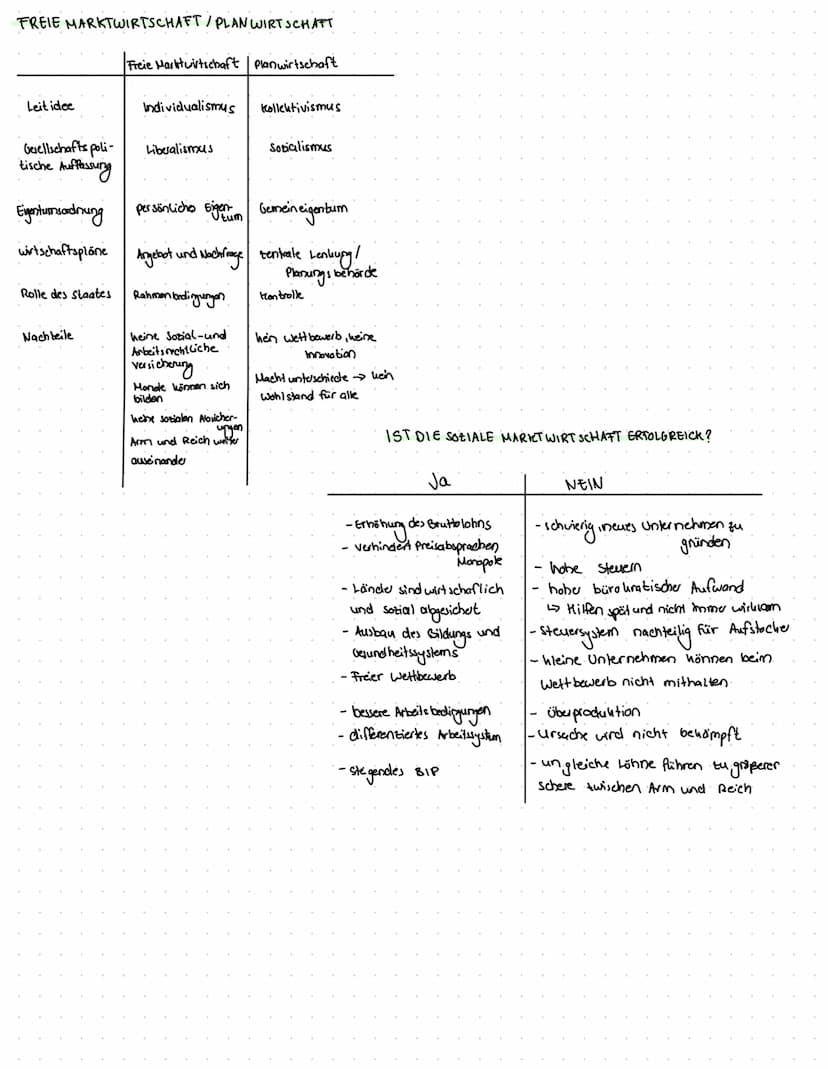 FREIE MARKTWIRTSCHAFT / PLANWIRTSCHAFT
Freie Marktwirtschaft Planwirtschaft
Leitidee Individualismus Kollektivismus
Gesellschaftspoli- Liberalismus Sozialismus
tische Auffassung
Eigentumsordnung persönliche Eigen- Gemeineigentum
tum
Wirtschaftspläne Angebot und Nachfrage zentrale Lenkung /
Planungsbehörde
Rolle des Staates Rahmenbedingungen Kontrolle
Nachteile keine Sozial- und kein Wettbewerb, keine
Arbeitsrechtliche Innovation
Versicherung
Machtunterschiede → kein
Monole können sich Wohlstand für alle
bilden
keine sozialen Absicher-
ungen
Arm und Reich weiter
auseinander
IST DIE SOZIALE MARKTWIRTSCHAFT ERFOLGREICH?
Ja NEIN
- Erhöhung des Bruttolohns - schwierig, neues Unternehmen zu
gründen
- verhindert Preisabsprachen
Monopole
- hohe Steuern
- Länder sind wirtschaflich - hoher bürokratischer Aufwand
und sozial abgesichert ↳ Hilfen spät und nicht immer wirksam
- Ausbau des Bildungs und - Steuersystem nachteilig für Aufstocker
Gesundheitssystems - kleine Unternehmen können beim
- Freier Wettbewerb Wettbewerb nicht mithalten
- bessere Arbeitsbedigungen - Überproduktion
- differentiertes Arbeitssystem - Ursache wird nicht bekämpft
- steigendes BIP - ungleiche Löhne führen zu größerer
Schere zwischen Arm und Reich